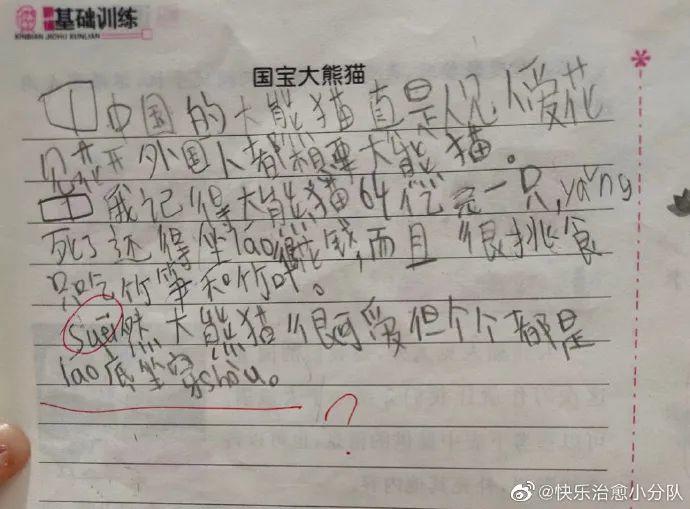 新编基础训练
XINBIAN JICHU XUNLIAN
国宝大熊猫
中国的大能猫真是人见人爱花
见花开外国人都想要大能猫。
我记得大能猫64亿元一只,yǎng
死了还得坐láo很花钱,而且很挑食
只吃竹笋和竹叶。
Suēi然大熊猫很可爱但个个都是
láo底坐穿shòu。
?
@快乐治愈小分队